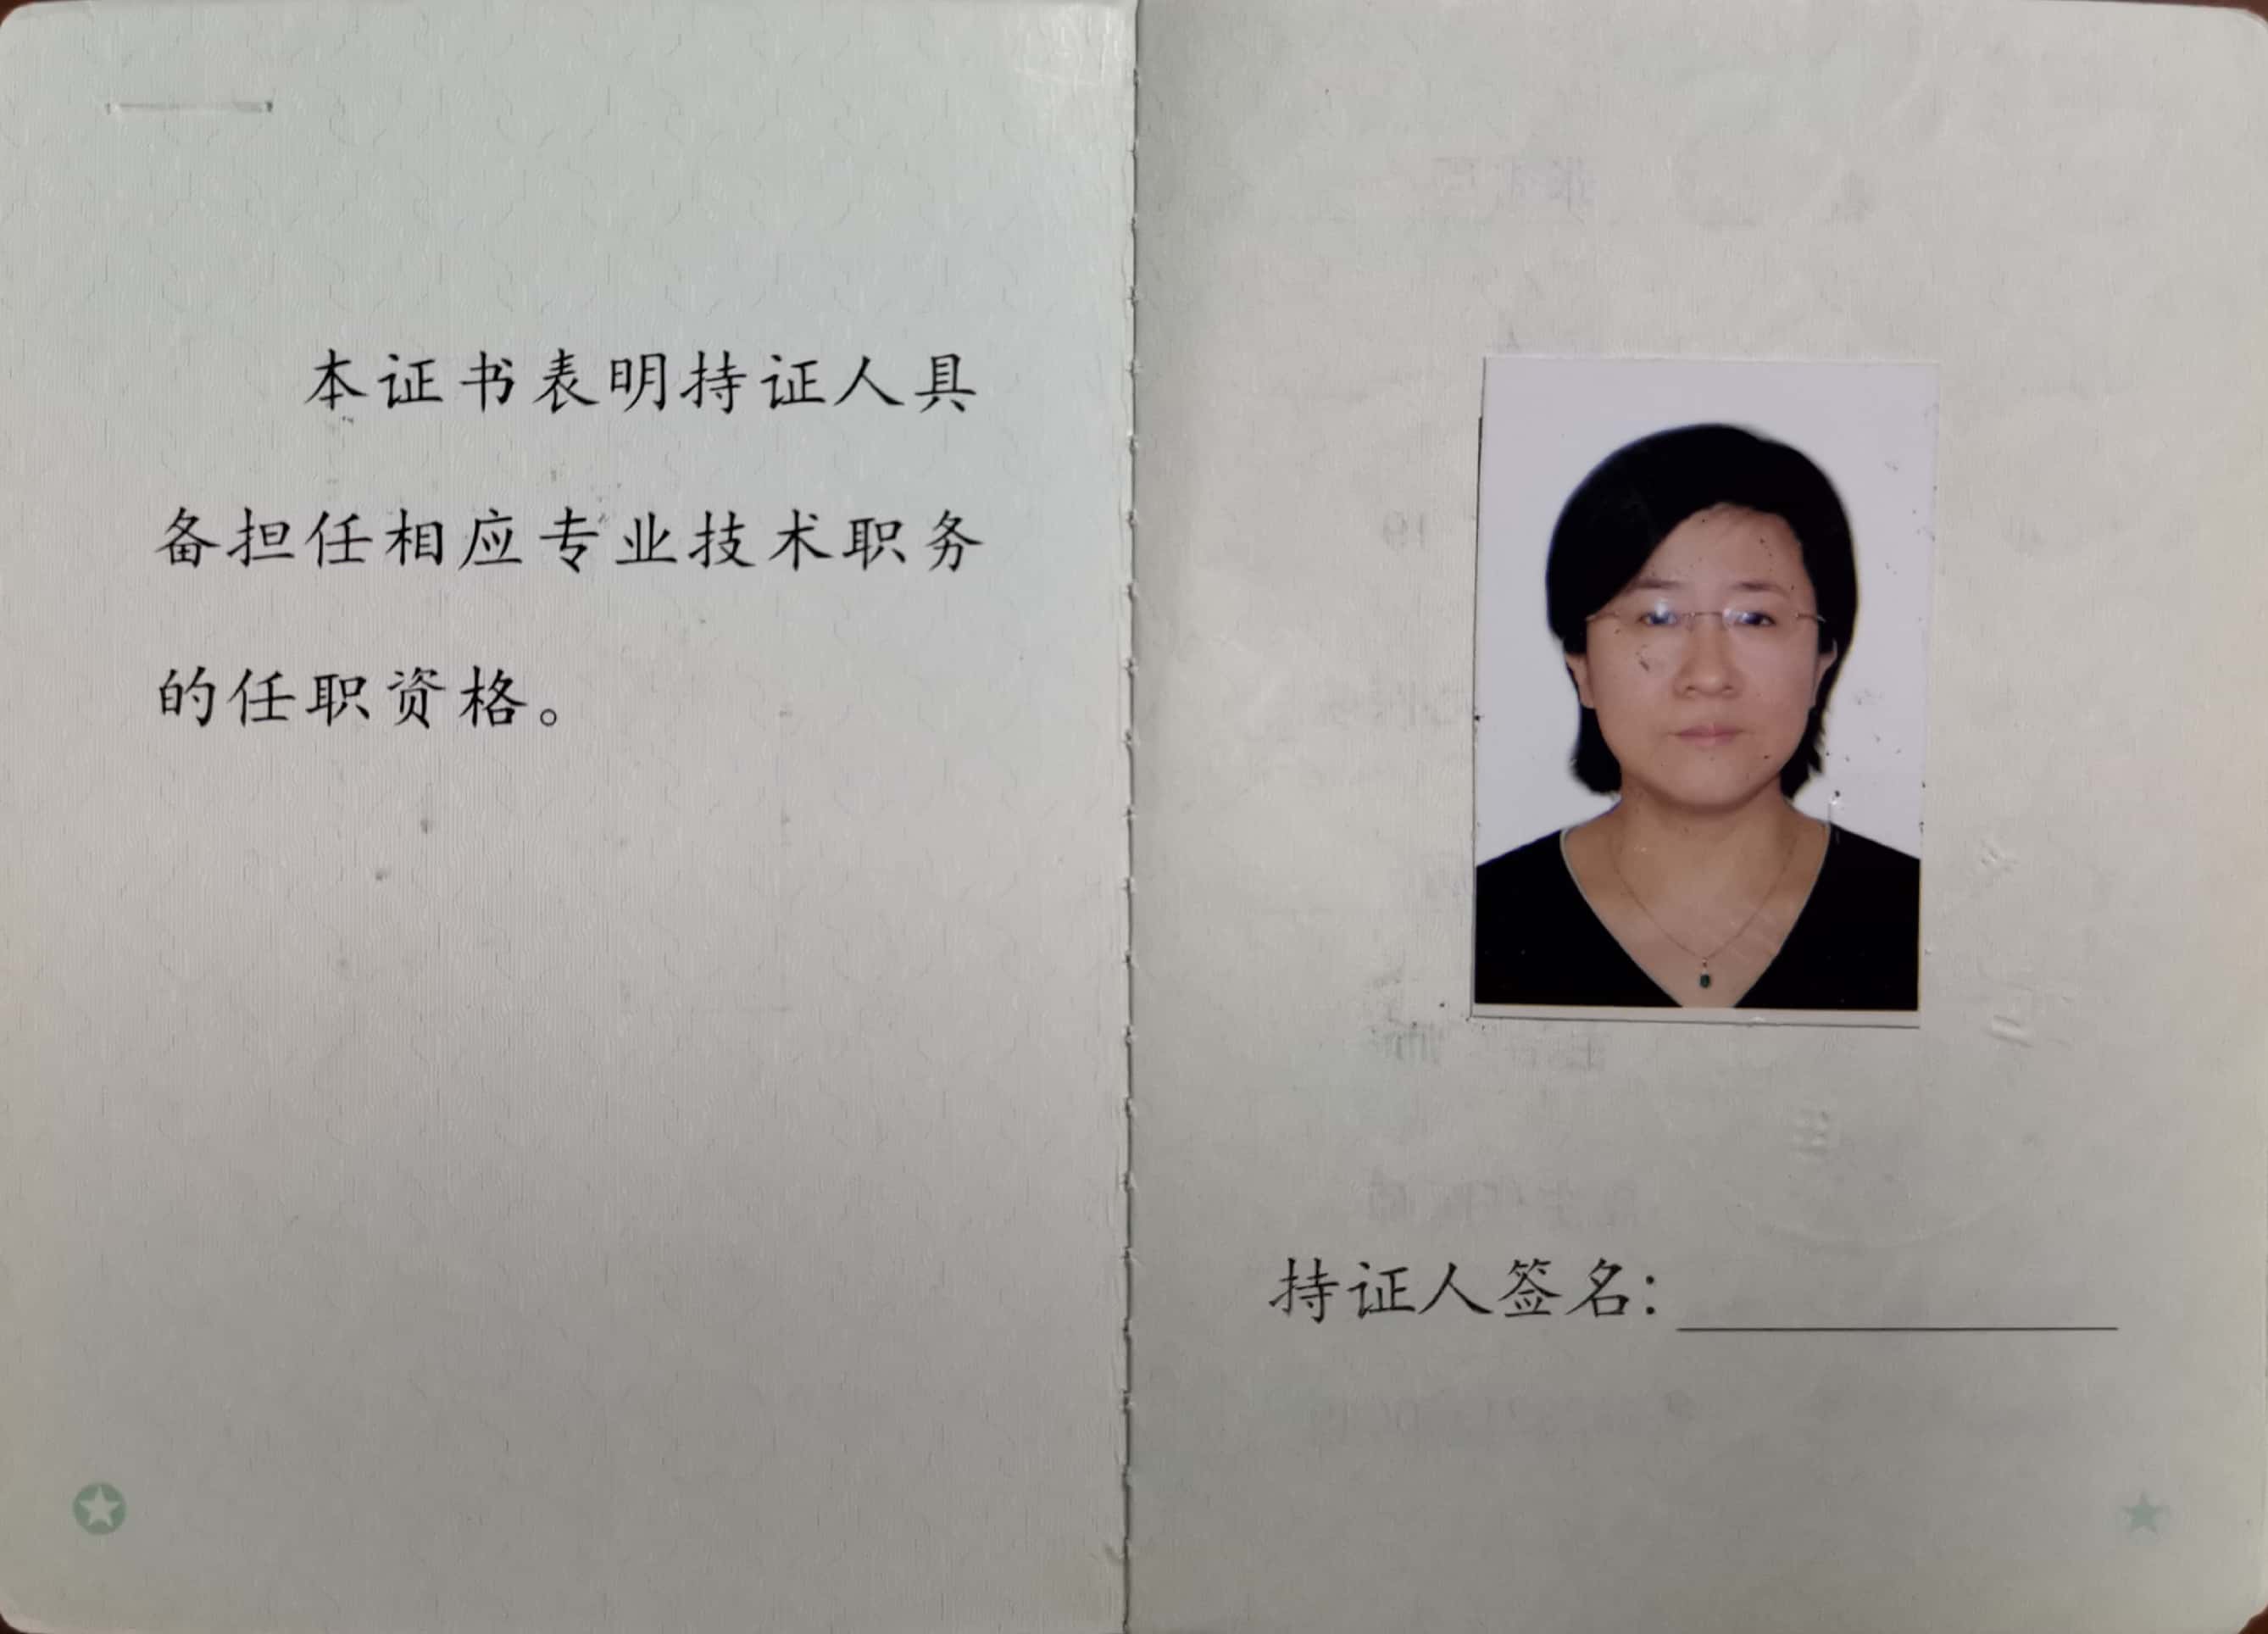 本证书表明持证人具
备担任相应专业技术职务
的任职资格。
持证人签名：